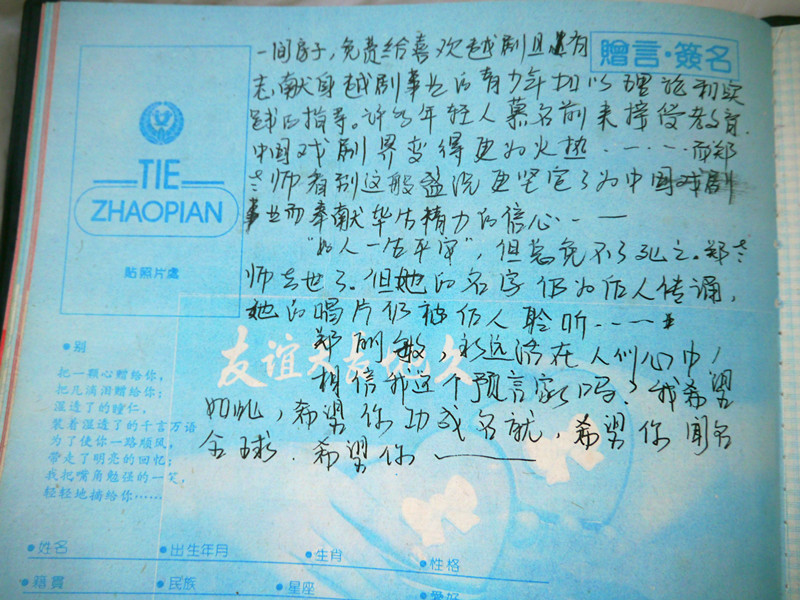 一间房子，免费给喜欢越剧且有
志献身越剧事业的青少年加以理论和实
践的指导。许多年轻人慕名前来接受教育.
中国戏剧界变得更为火热·一·一·而郑
老师看到这般盛况更坚定了为中国戏剧
事业而奉献毕生精力的信心·一一
"好人一生平安"，但总免不了死亡。郑老
师去世了。但她的名字仍为后人传诵，
她的唱片仍被后人聆听·一一
郑丽敏，永远活在人们心中，
相信我这个预言家吗？我希望
如此，希望你功成名就，希望你闻名
全球．希望你———
贈言·簽名
TIE
ZHAOPIAN
貼照片處
友谊天长地久
●别
把一颗心赠给你，
把几滴泪赠给你；
湿透了的瞳仁，
装着湿透了的千言万语
为了使你一路顺风，
带走了明亮的回忆；
我把嘴角勉强的一笑，
轻轻地摘给你……
●姓名
●出生年月
●生肖
●性格
●籍貫
●民族
●星座
●爱好